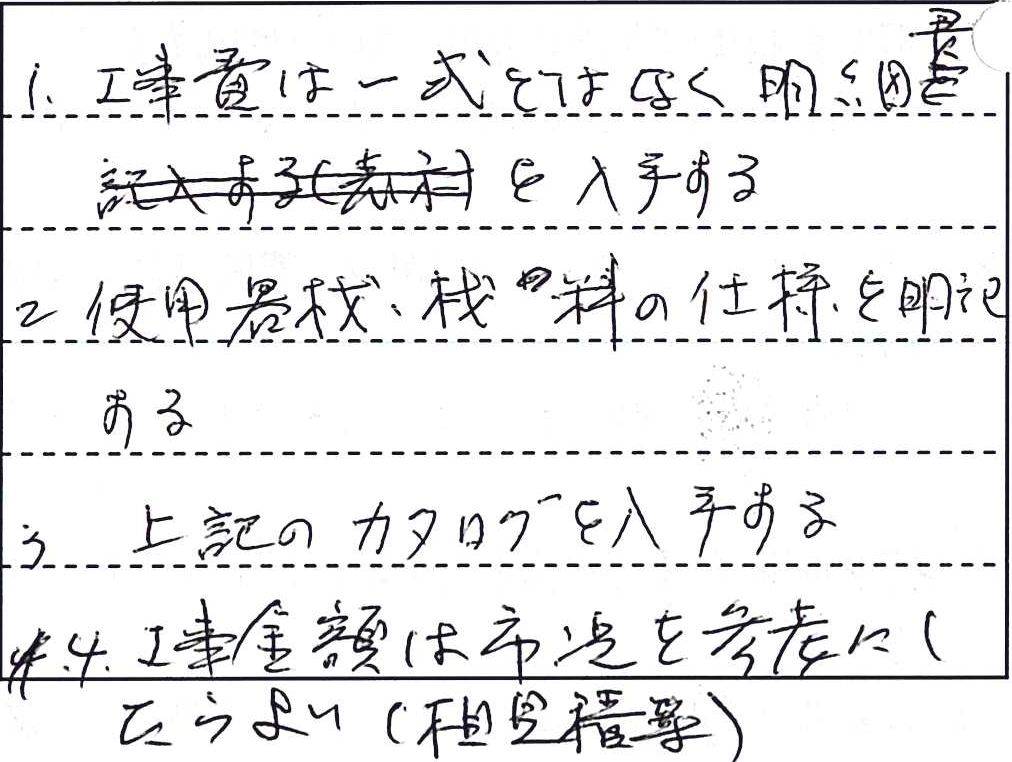 1. 工事費は一式ではなく明細書
を入手する
2 使用器材、材料の仕様を明記
する
3 上記のカタログを入手する
4. 工事金額は市況を参考にし
たらよい(相見積等)